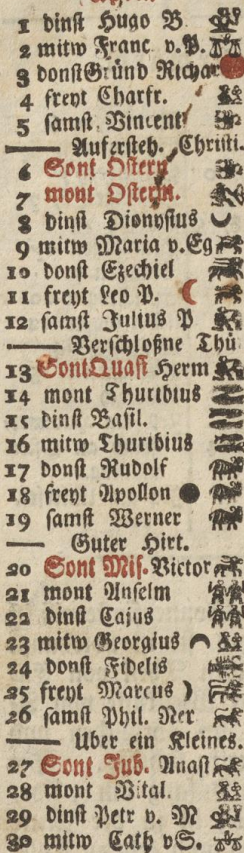 1 dinst Hugo B.
2 mitw Franc. v. P.
3 donst Gründ Richar
4 freyt Charfr.
5 samst Vincent
Aufersteh. Christi.
6 Sont Ostern
7 mont Osterm.
8 dinst Dionysius
9 mitw Maria v. Eg
10 donst Ezechiel
11 freyt Leo P.
12 samst Julius P
Verschloßne Thü
13 Sont Quasi Herm
14 mont Thuribius
15 dinst Basil.
16 mitw Thuribius
17 donst Rudolf
18 freyt Apollon
19 samst Werner
Guter Hirt.
20 Sont Mis. Victor
21 mont Anselm
22 dinst Cajus
23 mitw Georgius
24 donst Fidelis
25 freyt Marcus
26 samst Phil. Ner
Uber ein Kleines.
27 Sont Jub. Anast
28 mont Vital.
29 dinst Petr v. M
30 mitw Cath v S.